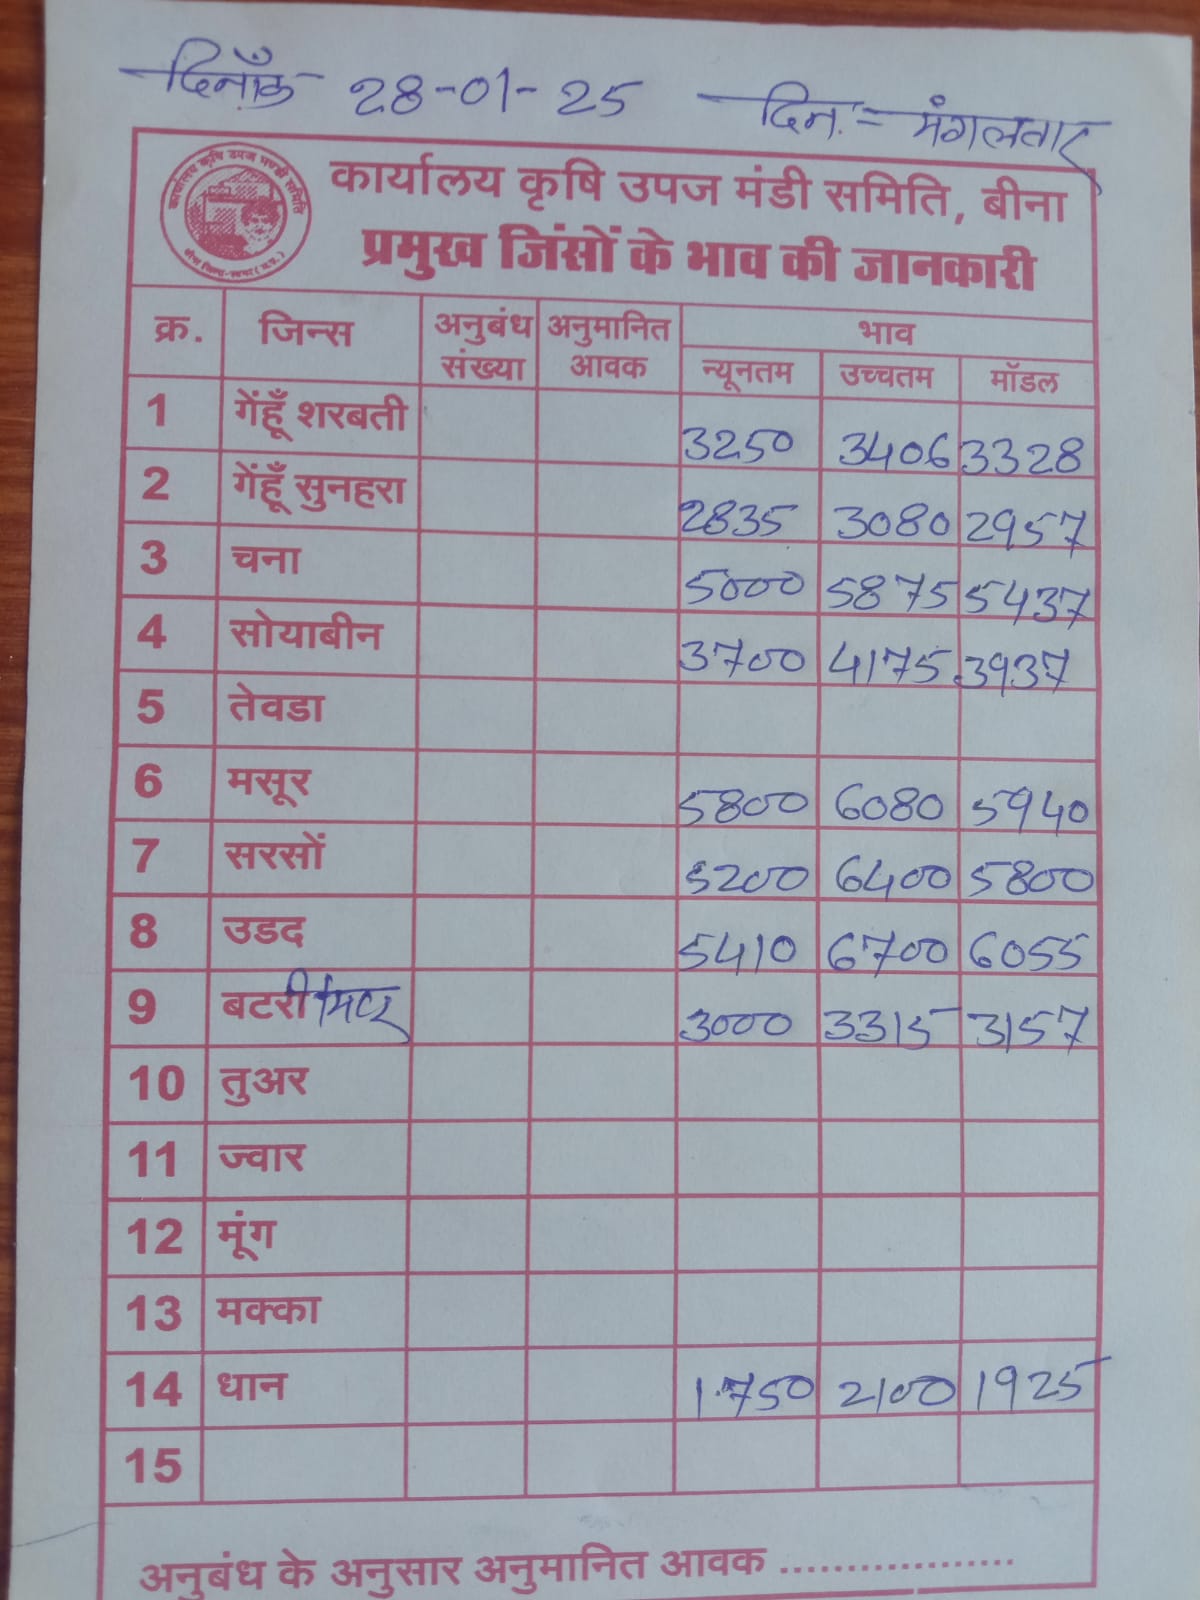 दिनाँक 28-01-25 दिन:= मंगलवार
कार्यालय कृषि उपज मण्डी समिति
बीना जिला-सागर (म.प्र.)
कार्यालय कृषि उपज मंडी समिति, बीना
प्रमुख जिंसों के भाव की जानकारी
क्र. जिन्स अनुबंध संख्या अनुमानित आवक भाव
न्यूनतम उच्चतम मॉडल
1 गेंहूँ शरबती 3250 3406 3328
2 गेंहूँ सुनहरा 2835 3080 2957
3 चना 5000 5875 5437
4 सोयाबीन 3700 4175 3937
5 तेवडा
6 मसूर 5800 6080 5940
7 सरसों 5200 6400 5800
8 उडद 5410 6700 6055
9 बटरी/मटर 3000 3315 3157
10 तुअर
11 ज्वार
12 मूंग
13 मक्का
14 धान 1750 2100 1925
15
अनुबंध के अनुसार अनुमानित आवक ...................